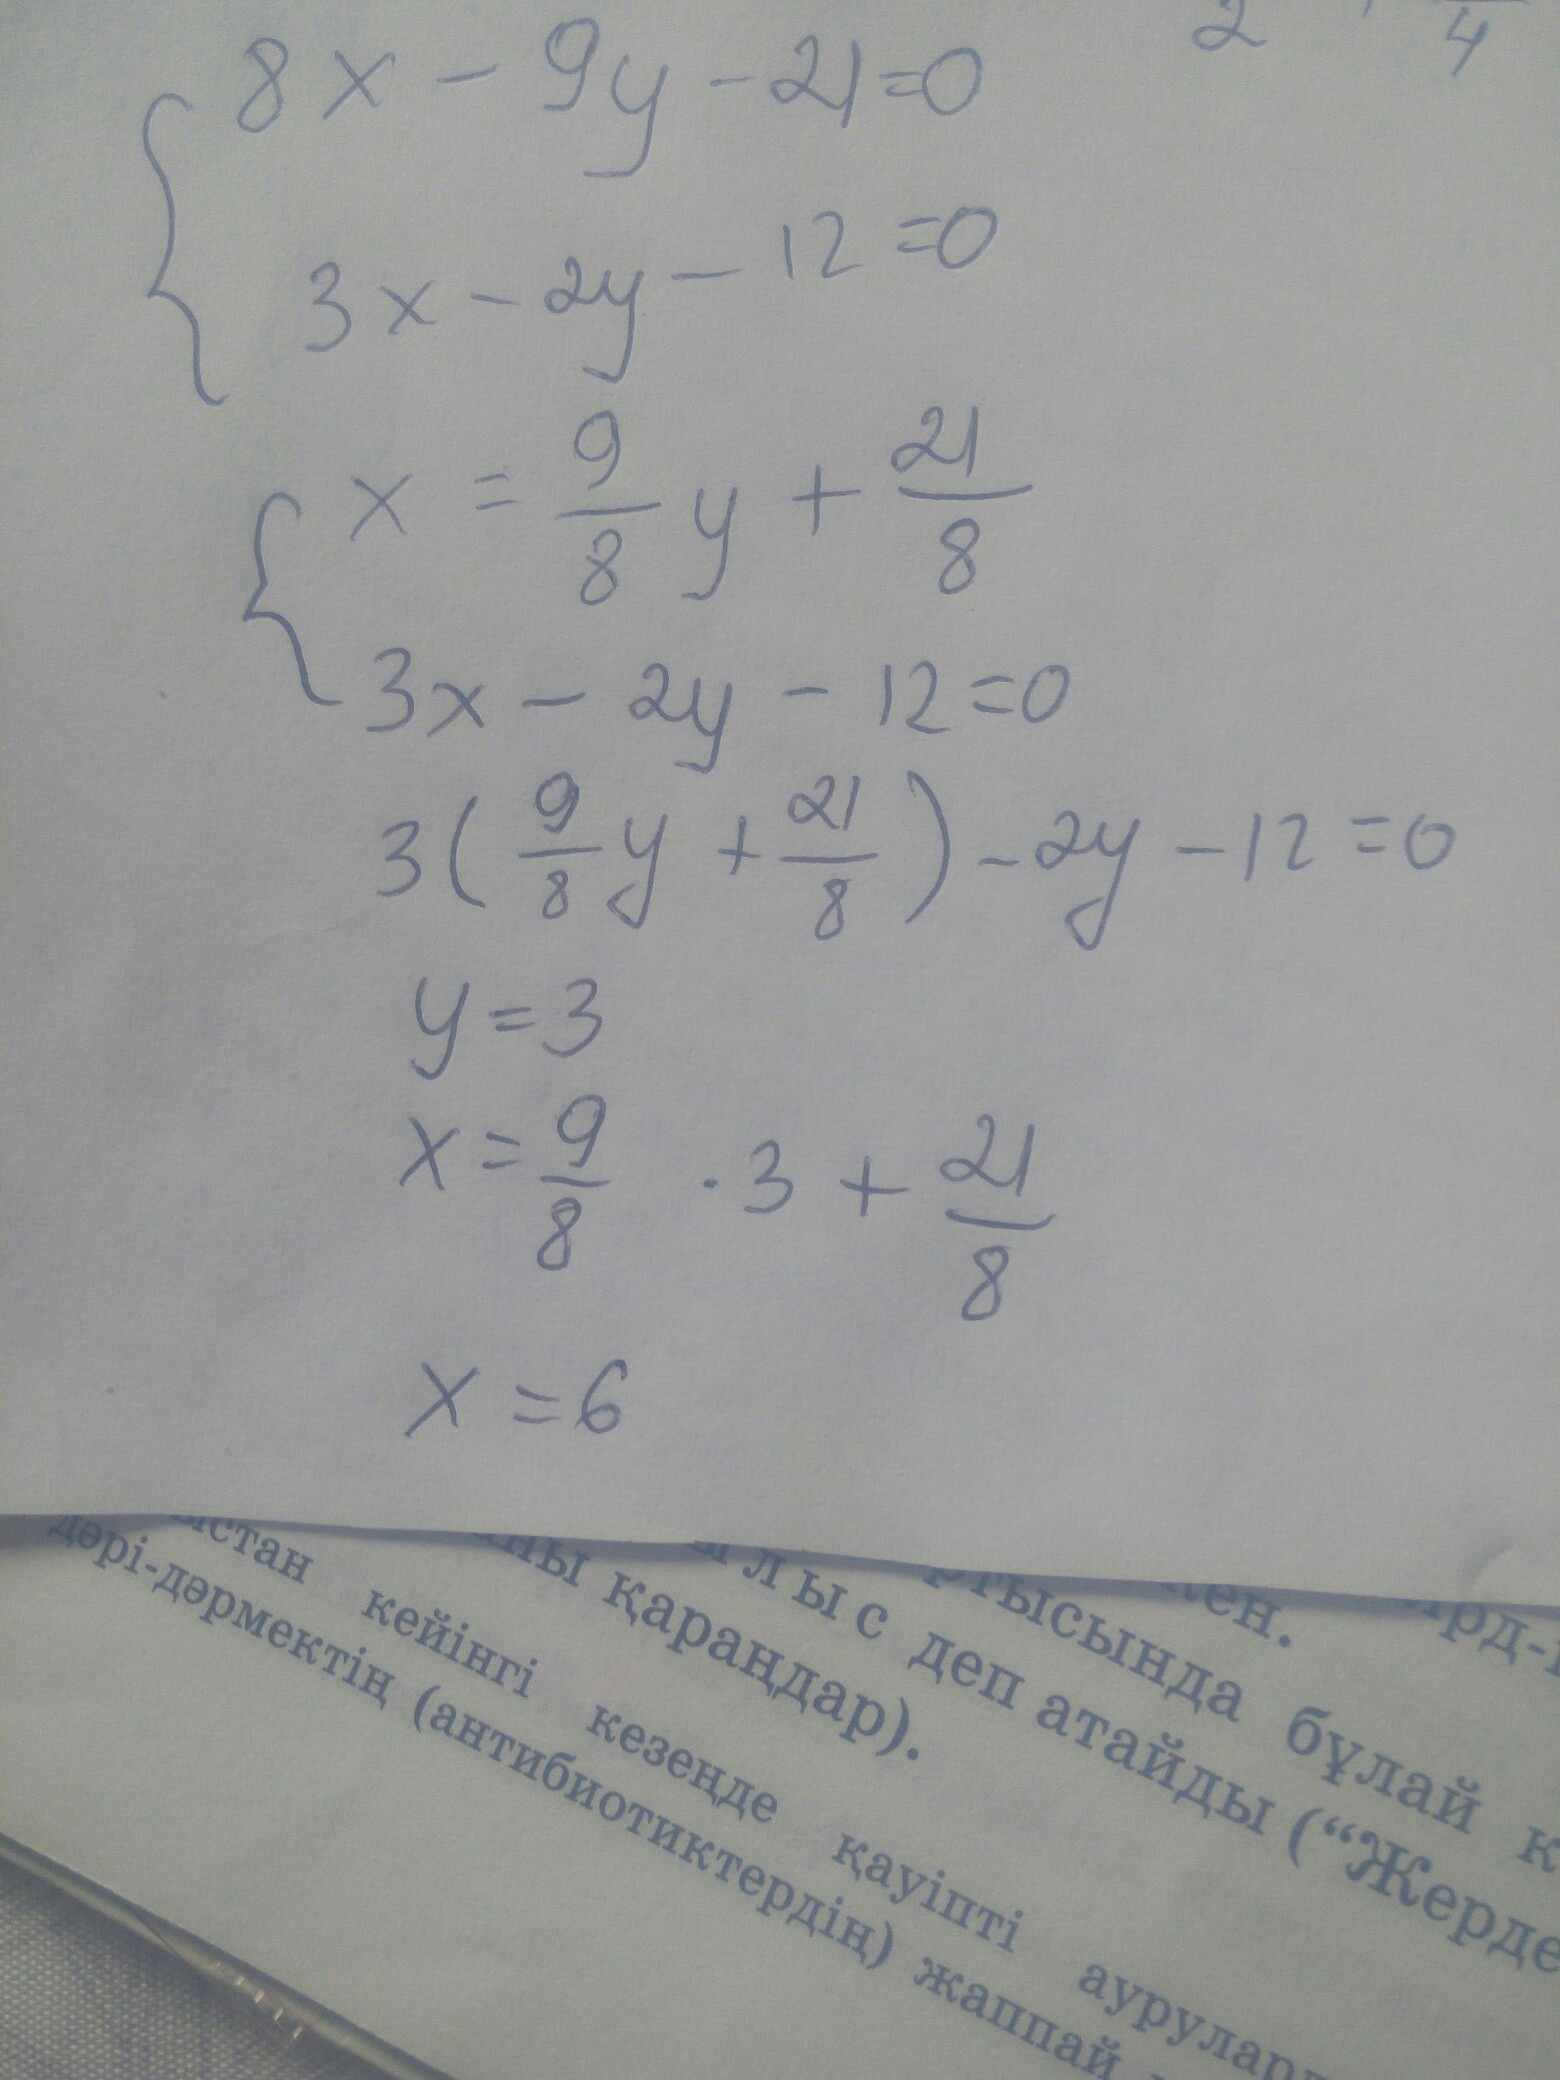 2 4
8x - 9y - 21 = 0
3x - 2y - 12 = 0
x = 9/8 y + 21/8
3x - 2y - 12 = 0
3(9/8 y + 21/8) - 2y - 12 = 0
y = 3
x = 9/8 · 3 + 21/8
x = 6
кен.
ртысында бұлай
лыс деп атайды (“Жерде
қараңдар).
кейінгі кезеңде қауіпті
дәрі-дәрмектің (антибиотиктердің) жаппай